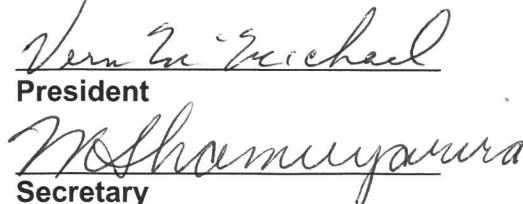 Vern McMichael
President
WShamuyarira
Secretary